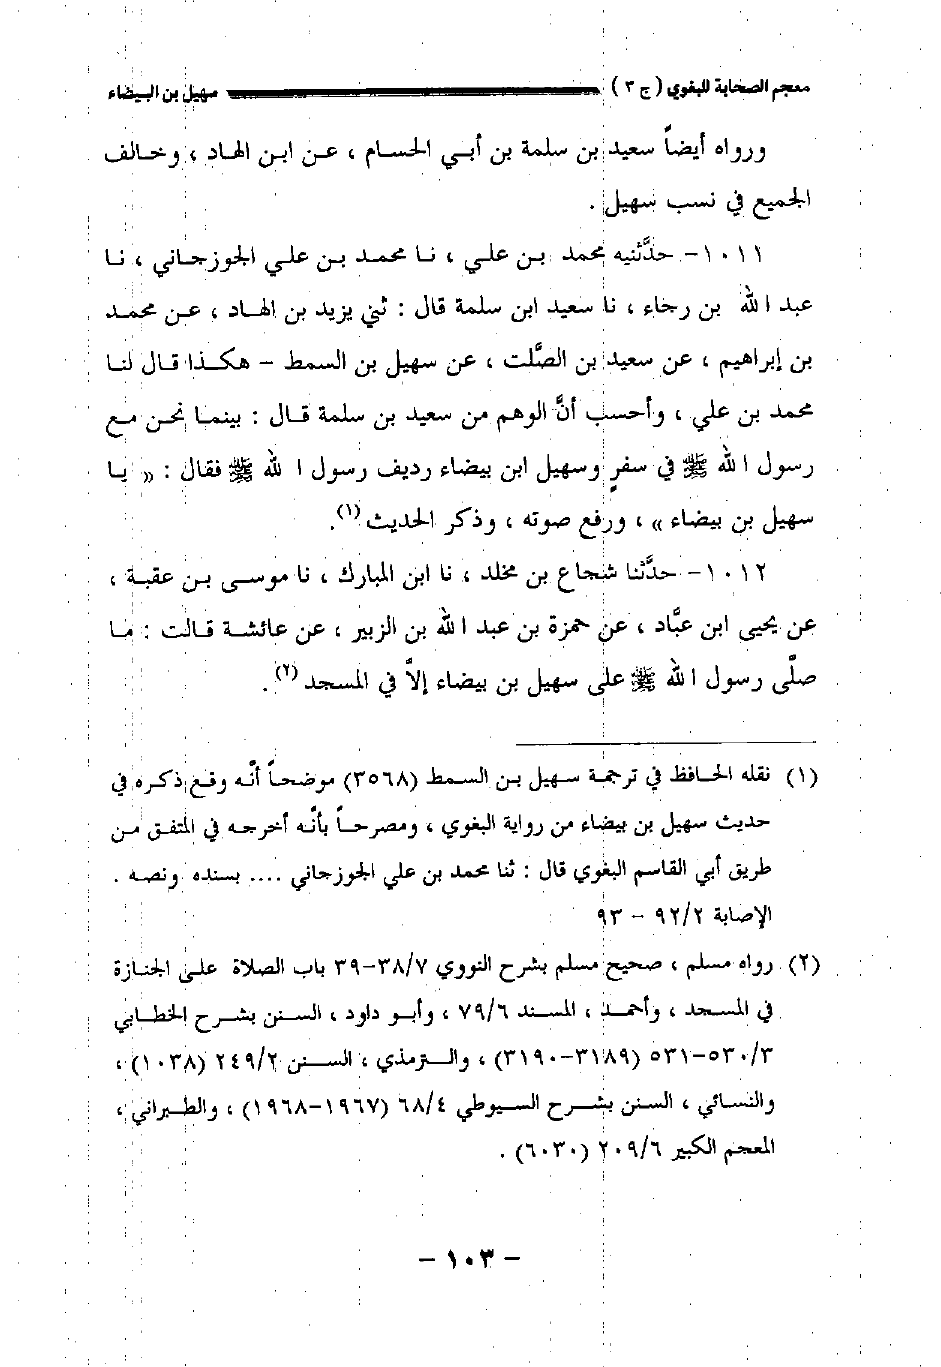 معجم الصحابة للبغوي ( ج ٣ ) سهيل بن البيضاء
ورواه أيضاً سعيد بن سلمة بن أبي الحسام ، عن ابن الهاد ، وخالف
الجميع في نسب سهيل .
١٠١١- حدَّثنيه محمد بن علي ، نا محمد بن علي الجوزجاني ، نا
عبد الله بن رجاء ، نا سعيد ابن سلمة قال : ثني يزيد بن الهاد ، عن محمد
بن إبراهيم ، عن سعيد بن الصَّلت ، عن سهيل بن السمط – هكذا قال لنا
محمد بن علي ، وأحسب أنَّ الوهم من سعيد بن سلمة قال : بينما نحن مع
رسول الله ﷺ في سفرٍ وسهيل ابن بيضاء رديف رسول الله ﷺ فقال : « يا
سهيل بن بيضاء » ، ورفع صوته ، وذكر الحديث (١).
١٠١٢- حدَّثنا شجاع بن مخلد ، نا ابن المبارك ، نا موسى بن عقبة ،
عن يحيى ابن عبَّاد ، عن حمزة بن عبد الله بن الزبير ، عن عائشة قالت : ما
صلَّى رسول الله ﷺ على سهيل بن بيضاء إلاَّ في المسجد (٢) .
(١) نقله الحافظ في ترجمة سهيل بن السمط (٣٥٦٨) موضحاً أنَّه وقع ذكره في
حديث سهيل بن بيضاء من رواية البغوي ، ومصرحاً بأنَّه أخرجه في المتفق من
طريق أبي القاسم البغوي قال : ثنا محمد بن علي الجوزجاني .... بسنده ونصه .
الإصابة ٩٢/٢ – ٩٣
(٢) رواه مسلم ، صحيح مسلم بشرح النووي ٣٨/٧-٣٩ باب الصلاة على الجنازة
في المسجد ، وأحمد ، المسند ٧٩/٦ ، وأبو داود ، السنن بشرح الخطابي
٥٣٠/٣-٥٣١ (٣١٨٩-٣١٩٠) ، والترمذي ، السنن ٢٤٩/٢ (١٠٣٨) ،
والنسائي ، السنن بشرح السيوطي ٦٨/٤ (١٩٦٧-١٩٦٨) ، والطبراني ،
المعجم الكبير ٢٠٩/٦ (٦٠٣٠) .
– ١٠٣ –